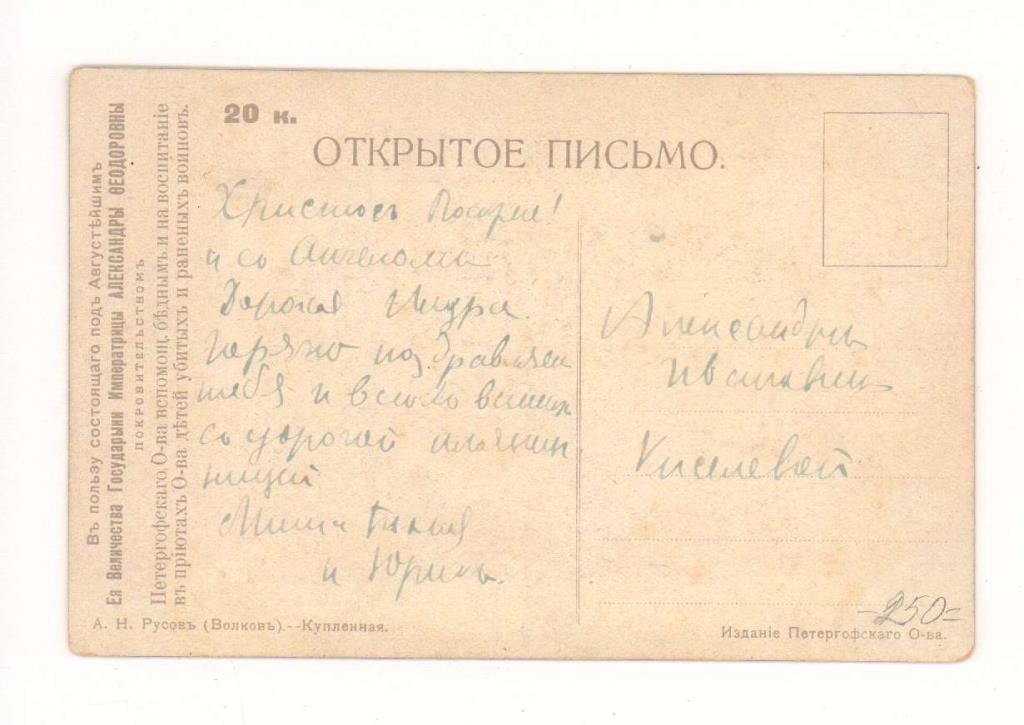 Въ пользу состоящаго подъ Августѣйшимъ
Ея Величества Государыни Императрицы АЛЕКСАНДРЫ ѲЕОДОРОВНЫ
покровительствомъ
Петергофскаго О-ва вспомощ. бѣднымъ и на воспитаніе
въ пріютахъ О-ва дѣтей убитыхъ и раненыхъ воиновъ.
20 к.
ОТКРЫТОЕ ПИСЬМО.
Христосъ
и со Ангеломъ
Дорогая Шура!
горячо поздравляем
тебя и всехъ
со дорогой
Миша
и Юрикъ.
Александры
Ивановны
Киселевой
-250=
А. Н. Русовъ (Волковъ).--Купленная.
Изданіе Петергофскаго О-ва.